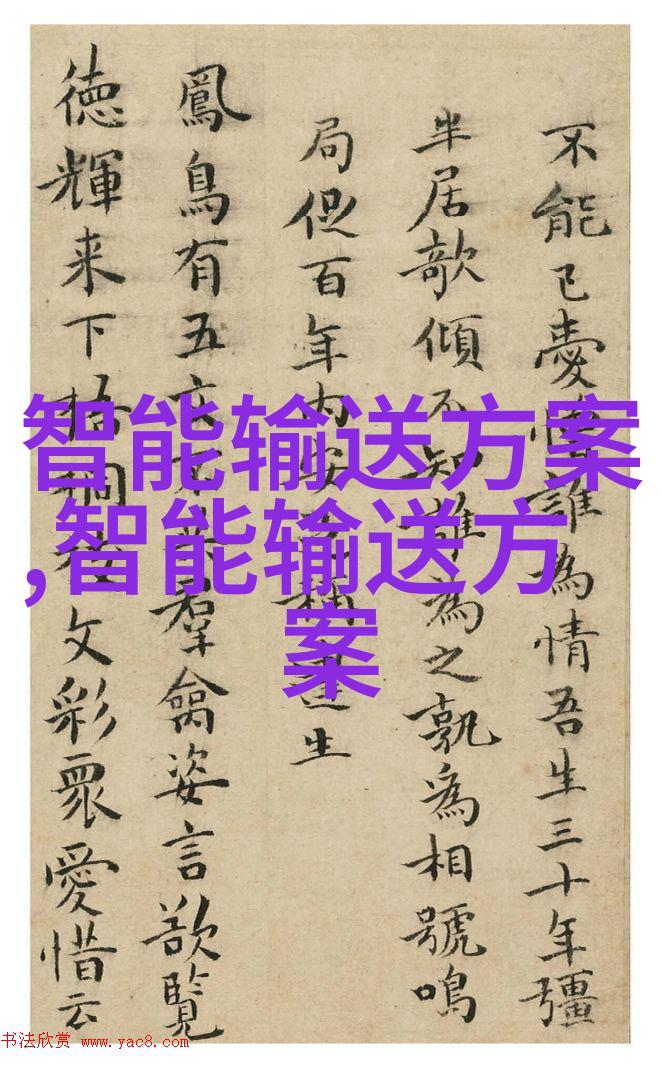 不能已憂誰為情吾生三十年彊
半居欹傾不知誰為之孰為相號鳴
局促百年内安稱達生
鳳鳥有五羣禽姿言欲覽
德輝来下梧桐文彩眾愛惜云
智能输送方案
,智能输送方
案
书法欣赏 www.yac8.com